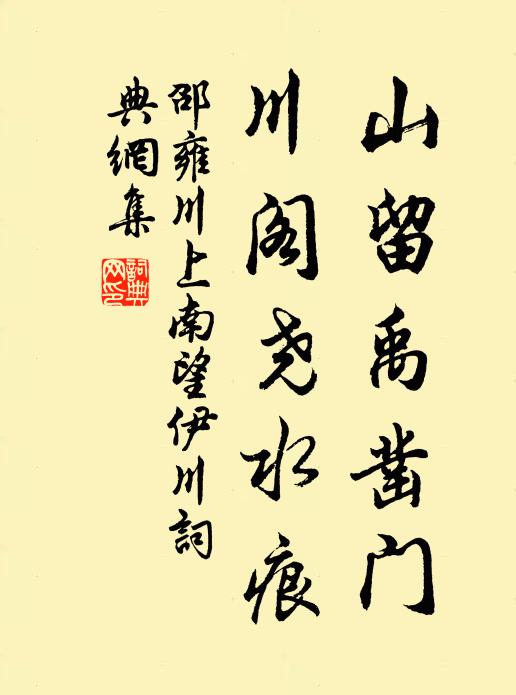 山留禹凿门
川阁尧水痕
邵雍川上南望伊川詞
典網集
詞典
网印